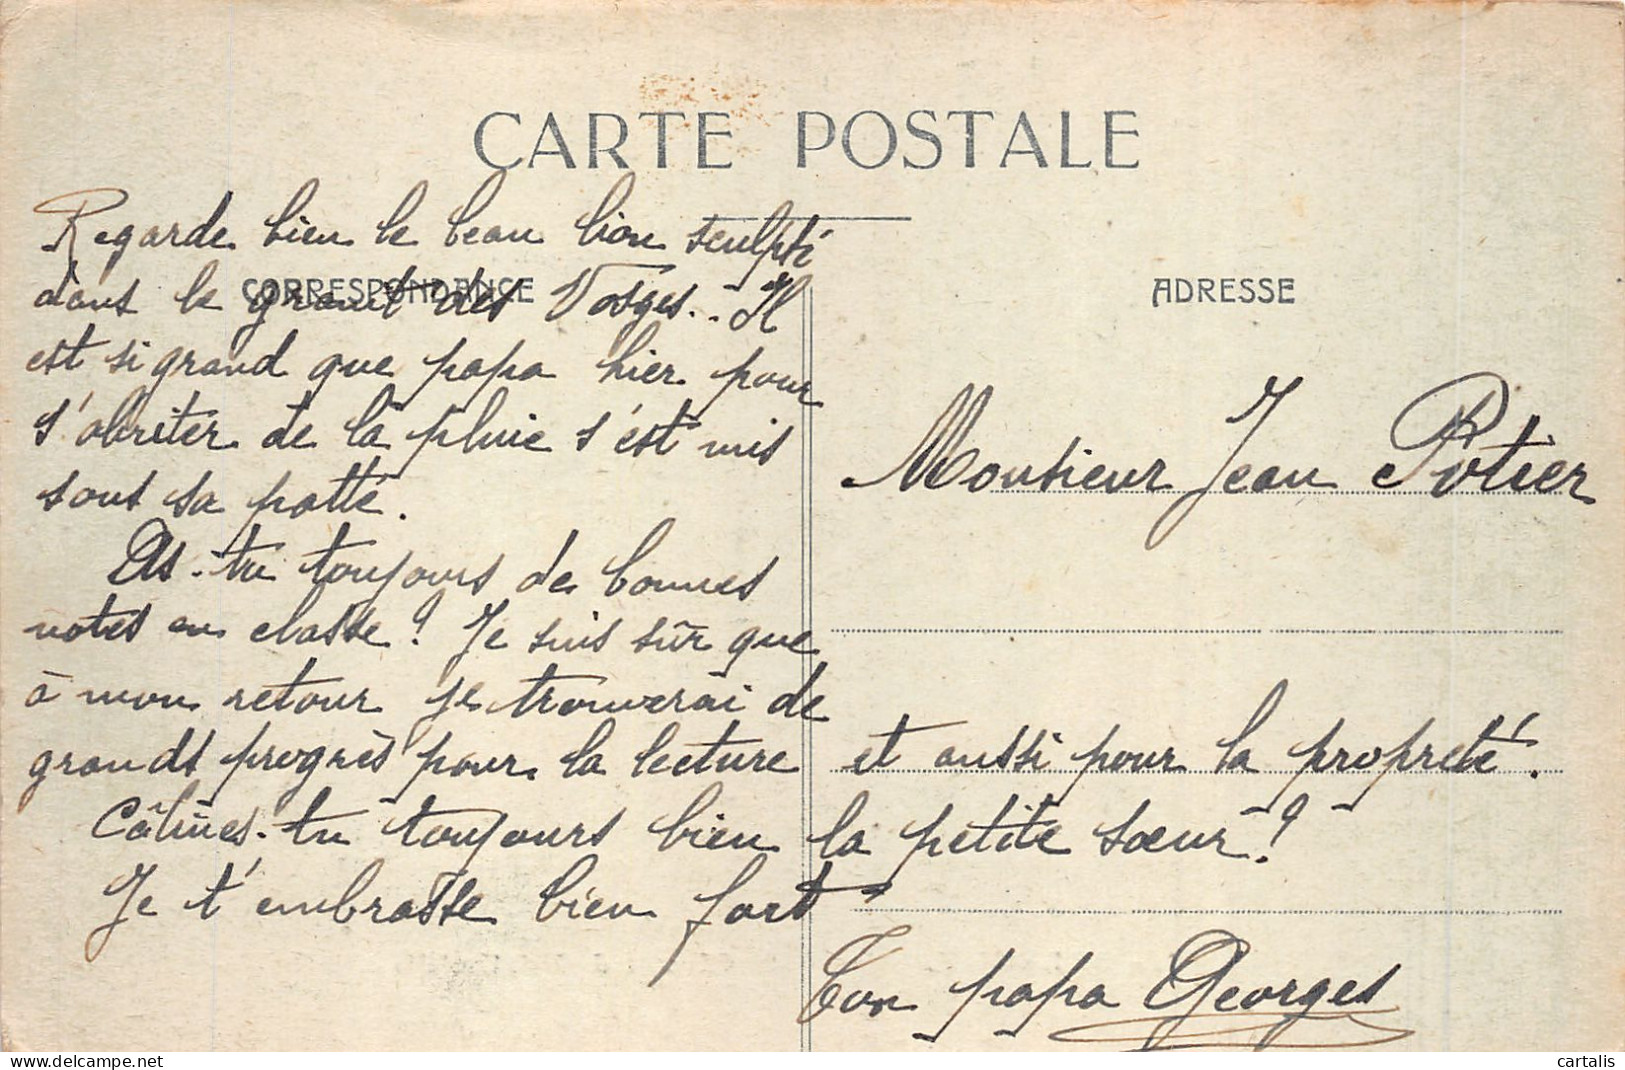 CARTE POSTALE
CORRESPONDANCE
ADRESSE
Regarde bien le beau lion sculpté
dans le granit des Vosges.. Il
est si grand que papa hier pour
s'abriter de la pluie s'est mis
sous sa patte.
As-tu toujours de bonnes
notes en classe? Je suis sûr que
à mon retour je trouverai de
grands progrès pour la lecture et aussi pour la propreté.
Câlines-tu toujours bien la petite sœur?
Je t'embrasse bien fort
Ton papa Georges
Monsieur Jean Potier
cartalis
https://www.delcampe.net